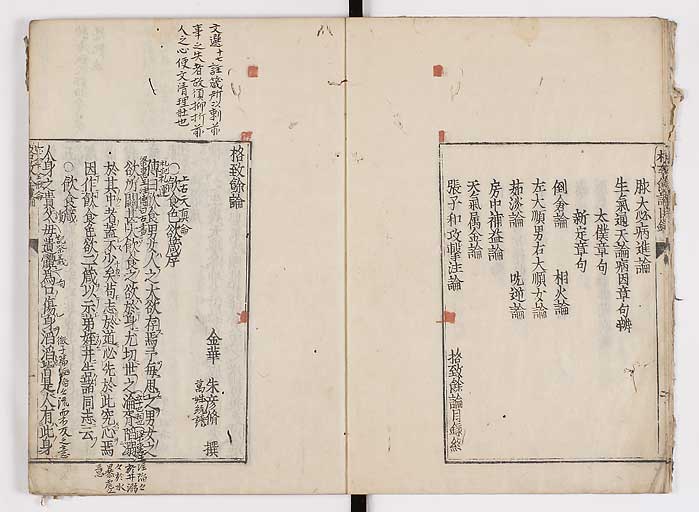 脉大必病進論
生氣通天論病因章句辯
太僕章句
新定章句
倒倉論 相火論
左大順男右大順女論
茹淡論 吃逆論
房中補益論
天氣属金論
張子和攻擊注論
格致餘論目録終
文選十七註箴所以刺前
事之失者故須抑折前
人之心使文清理壯也
格致餘論
金華 朱彦脩 撰
○飲食色欲箴序
傳曰飲食男女人之大欲存焉予毎思之男女之
欲所關甚大飲食之欲於身尤切世之淪胥陷溺
於其中者蓋不少矣苟志於道必先於此究心焉
因作飲食色欲二箴以示弟姪并告諸同志云
○飲食箴
人身之貴父母遺體爲口傷身滔滔皆是人有此身